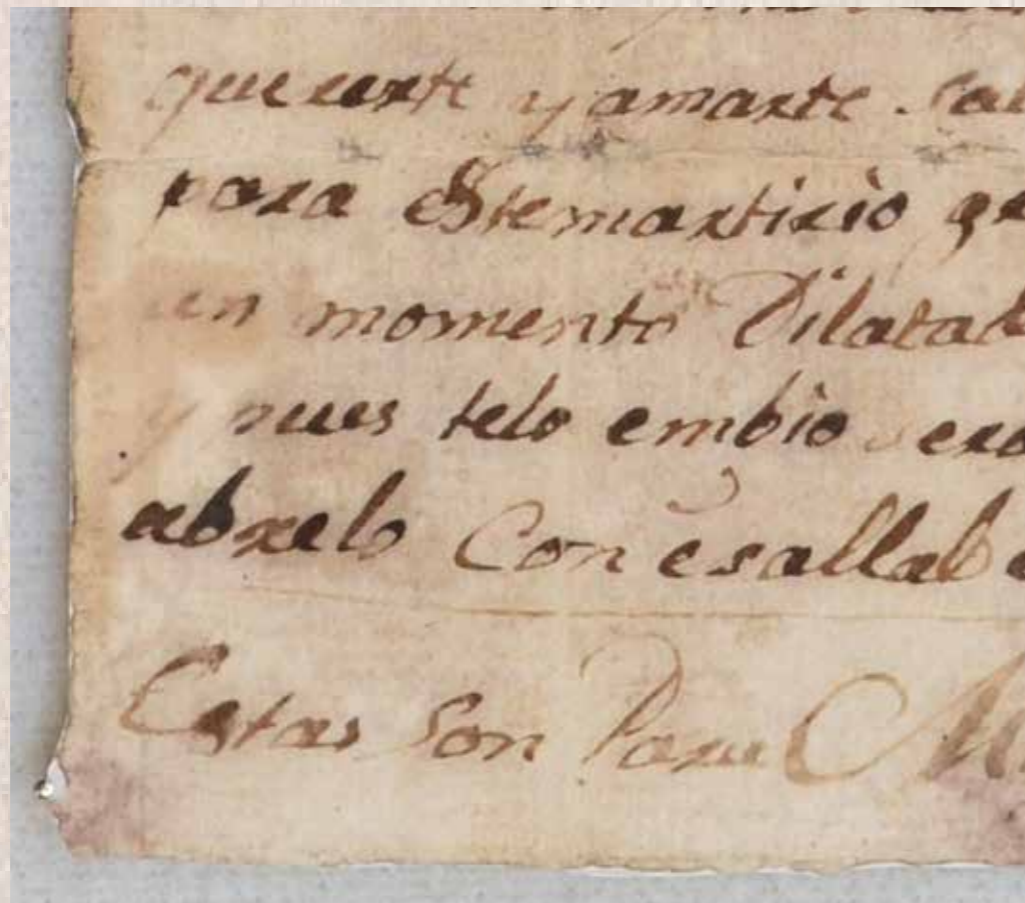 quererte y amarte
para Estemartirio
un momento Dilatad
y pues telo embio sera
abrelo Con esallab e
Estas son Para